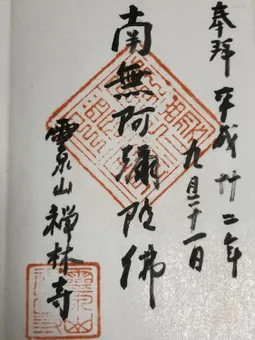 奉拜
平成廿二年
九月二十一日
南無阿彌陀佛
霊泉山禅林寺